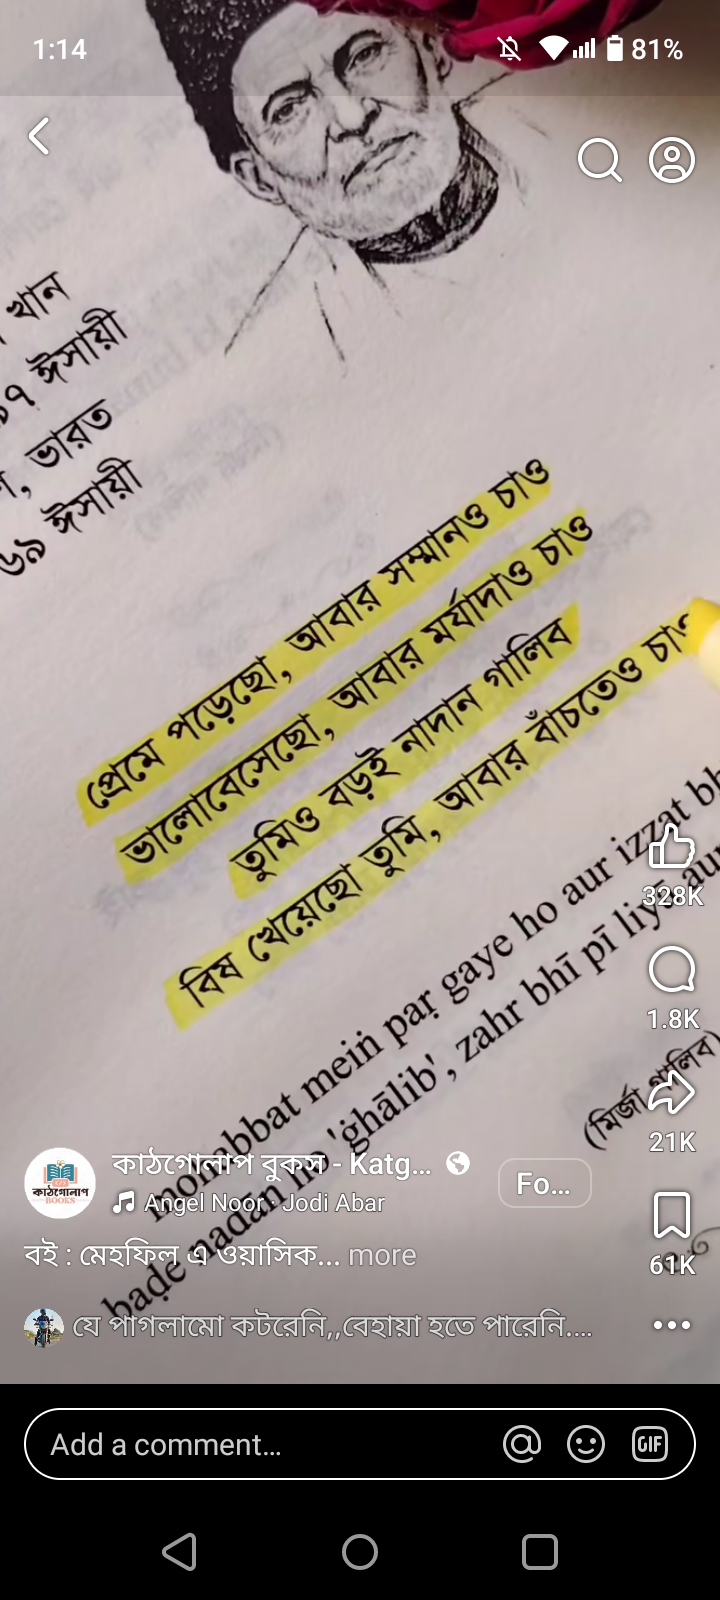 1:14
81%
খান
ঈসায়ী
ভারত
৬৯ ঈসায়ী
প্রেমে পড়েছো, আবার সম্মানও চাও
ভালোবেসেছো, আবার মর্যাদাও চাও
তুমিও বড়ই নাদান গালিব
বিষ খেয়েছো তুমি, আবার বাঁচতেও চাও
mohabbat meiṅ paṛ gaye ho aur izzat
baḍe nadān ho 'ġhālib', zahr bhī pī liyā aur
(মির্জা গালিব)
328K
1.8K
21K
61K
কাঠগোলাপ বুকস - Katg...
কাঠগোলাপ
BOOKS
Fo...
Angel Noor · Jodi Abar
বই : মেহফিল এ ওয়াসিক... more
যে পাগলামো কটরেনি,,বেহায়া হতে পারেনি....
Add a comment...
GIF